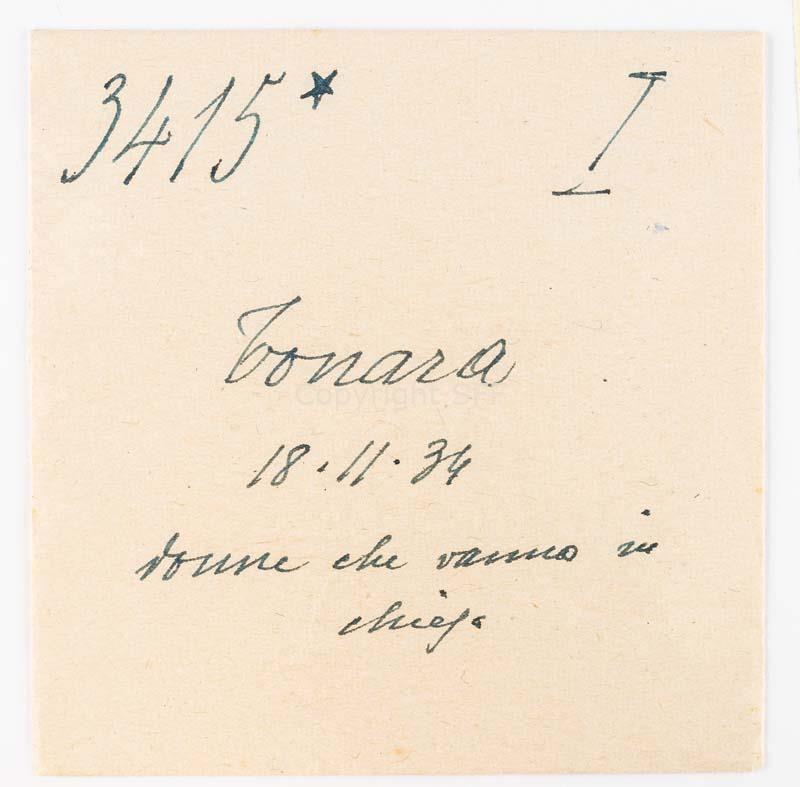 3415* I
Tonara
Copyright SFF
18.11.34
donne che vanno in
chiesa